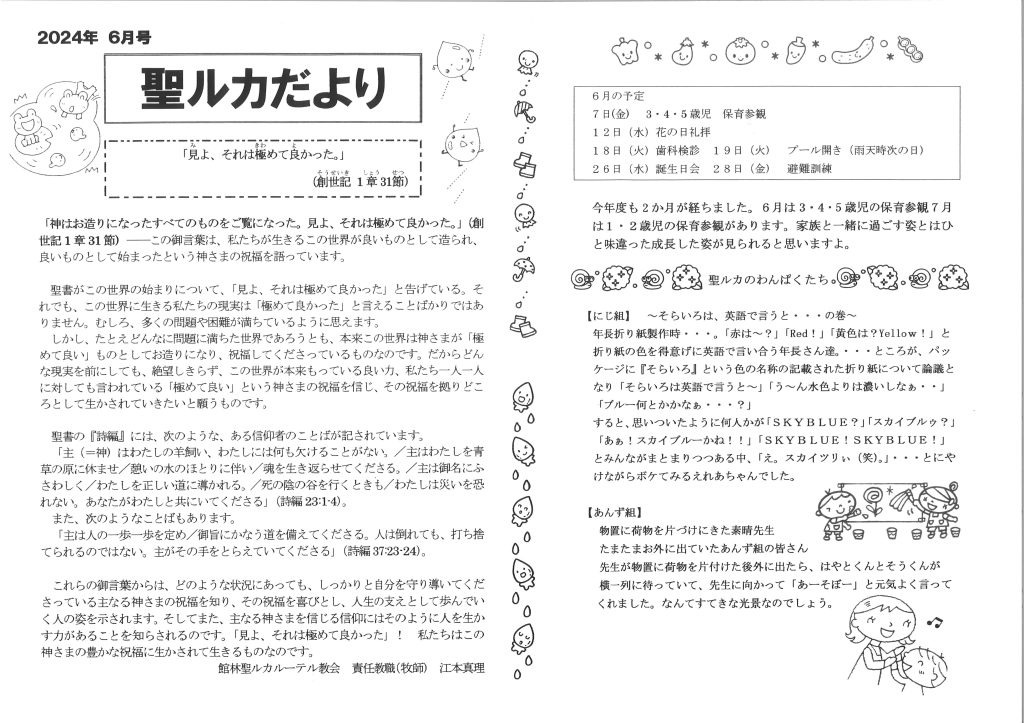 2024年 6月号
聖ルカだより
「見よ、それは極めて良かった。」
(創世記 1章31節)
「神はお造りになったすべてのものをご覧になった。見よ、それは極めて良かった。」(創
世記1章31節) ――この御言葉は、私たちが生きるこの世界が良いものとして造られ、
良いものとして始まったという神さまの祝福を語っています。
聖書がこの世界の始まりについて、「見よ、それは極めて良かった」と告げている。そ
れでも、この世界に生きる私たちの現実は「極めて良かった」と言えることばかりではあ
りません。むしろ、多くの問題や困難が満ちているように思えます。
しかし、たとえどんなに問題に満ちた世界であろうとも、本来この世界は神さまが「極
めて良い」ものとしてお造りになり、祝福してくださっているものなのです。だからどん
な現実を前にしても、絶望しきらず、この世界が本来もっている良い力、私たち一人一人
に対しても言われている「極めて良い」という神さまの祝福を信じ、その祝福を拠りどこ
ろとして生かされていきたいと願うものです。
聖書の『詩編』には、次のような、ある信仰者のことばが記されています。
「主（＝神）はわたしの羊飼い、わたしには何も欠けることがない。／主はわたしを青
草の原に休ませ／憩いの水のほとりに伴い／魂を生き返らせてくださる。／主は御名にふ
さわしく／わたしを正しい道に導かれる。／死の陰の谷を行くときも／わたしは災いを恐
れない。あなたがわたしと共にいてくださる」(詩編23:1-4)。
また、次のようなことばもあります。
「主は人の一歩一歩を定め／御旨にかなう道を備えてくださる。人は倒れても、打ち捨
てられるのではない。主がその手をとらえていてくださる」(詩編37:23-24)。
これらの御言葉からは、どのような状況にあっても、しっかりと自分を守り導いてくだ
さっている主なる神さまの祝福を知り、その祝福を喜びとし、人生の支えとして歩んでい
く人の姿を示されます。そしてまた、主なる神さまを信じる信仰にはそのように人を生か
す力があることを知らされるのです。「見よ、それは極めて良かった」！　私たちはこの
神さまの豊かな祝福に生かされて生きるものなのです。
館林聖ルカルーテル教会　責任教職(牧師)　江本真理
６月の予定
７日(金)　３・４・５歳児　保育参観
１２日（水）花の日礼拝
１８日（火）歯科検診　１９日（火）　プール開き（雨天時次の日）
２６日（水）誕生日会　２８日（金）　避難訓練
今年度も２か月が経ちました。６月は３・４・５歳児の保育参観７月
は１・２歳児の保育参観があります。家族と一緒に過ごす姿とはひ
と味違った成長した姿が見られると思いますよ。
聖ルカのわんぱくたち
【にじ組】　～そらいろは、英語で言うと・・・の巻～
年長折り紙製作時・・・。「赤は～？」「Red！」「黄色は？Yellow！」と
折り紙の色を得意げに英語で言い合う年長さん達。・・・ところが、パッ
ケージに『そらいろ』という色の名称の記載された折り紙について論議と
なり「そらいろは英語で言うと～」「う～ん水色よりは濃いしなぁ・・」
「ブルー何とかかなぁ・・・？」
すると、思いついたように何人かが「ＳＫＹＢＬＵＥ？」「スカイブルゥ？」
「あぁ！スカイブルーかね！！」「ＳＫＹＢＬＵＥ！ＳＫＹＢＬＵＥ！」
とみんながまとまりつつある中、「え。スカイツリぃ（笑）。」・・・とにや
けながらボケてみるえれあちゃんでした。
【あんず組】
物置に荷物を片づけにきた素晴先生
たまたまお外に出ていたあんず組の皆さん
先生が物置に荷物を片付けた後外に出たら、はやとくんとそうくんが
横一列に待っていて、先生に向かって「あーそぼー」と元気よく言って
くれました。なんてすてきな光景なのでしょう。